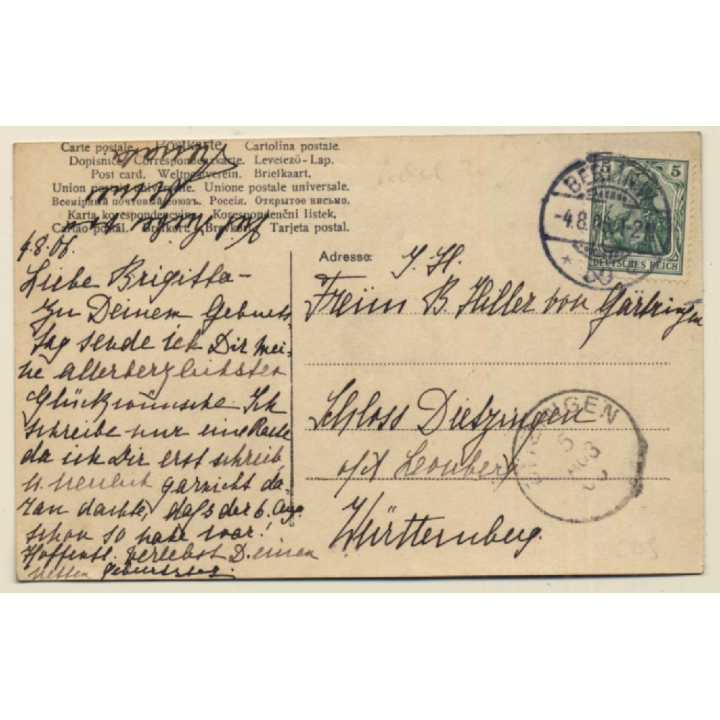 Carte postale. Postkarte Cartolina postale.
Dopisnice Correspondenzkarte. Levelező-Lap.
Post card. Weltpostverein. Briefkaart.
Union postale universelle. Unione postale universale.
Всемірный почтовый союзъ. Россія. Открытое письмо.
Karta korespondencyjna Korespondenční lístek.
Cartão postal. Brefkort. Brevkort. Tarjeta postal.
4.8.06.
Liebe Brigitta -
Zu Deinem Geburts
tag sende ich Dir mei-
ne allerherzlichsten
Glückwünsche. Ich
schreibe nur eine Karte
da ich Dir erst schrieb
u. neulich garnicht da-
ran dachte, daß der 6. Aug.
schon so nahe war!
Hoffentl. verlebst Deinen
Adresse:
I. H.
Freiin B. Hiller von Gärtringen
Schloss Dietzingen
o/t Leonberg
Württemberg.
BERLIN, W.
-4.8.06.1-2N
* 50
5 5
DEUTSCHES REICH
5
AUG